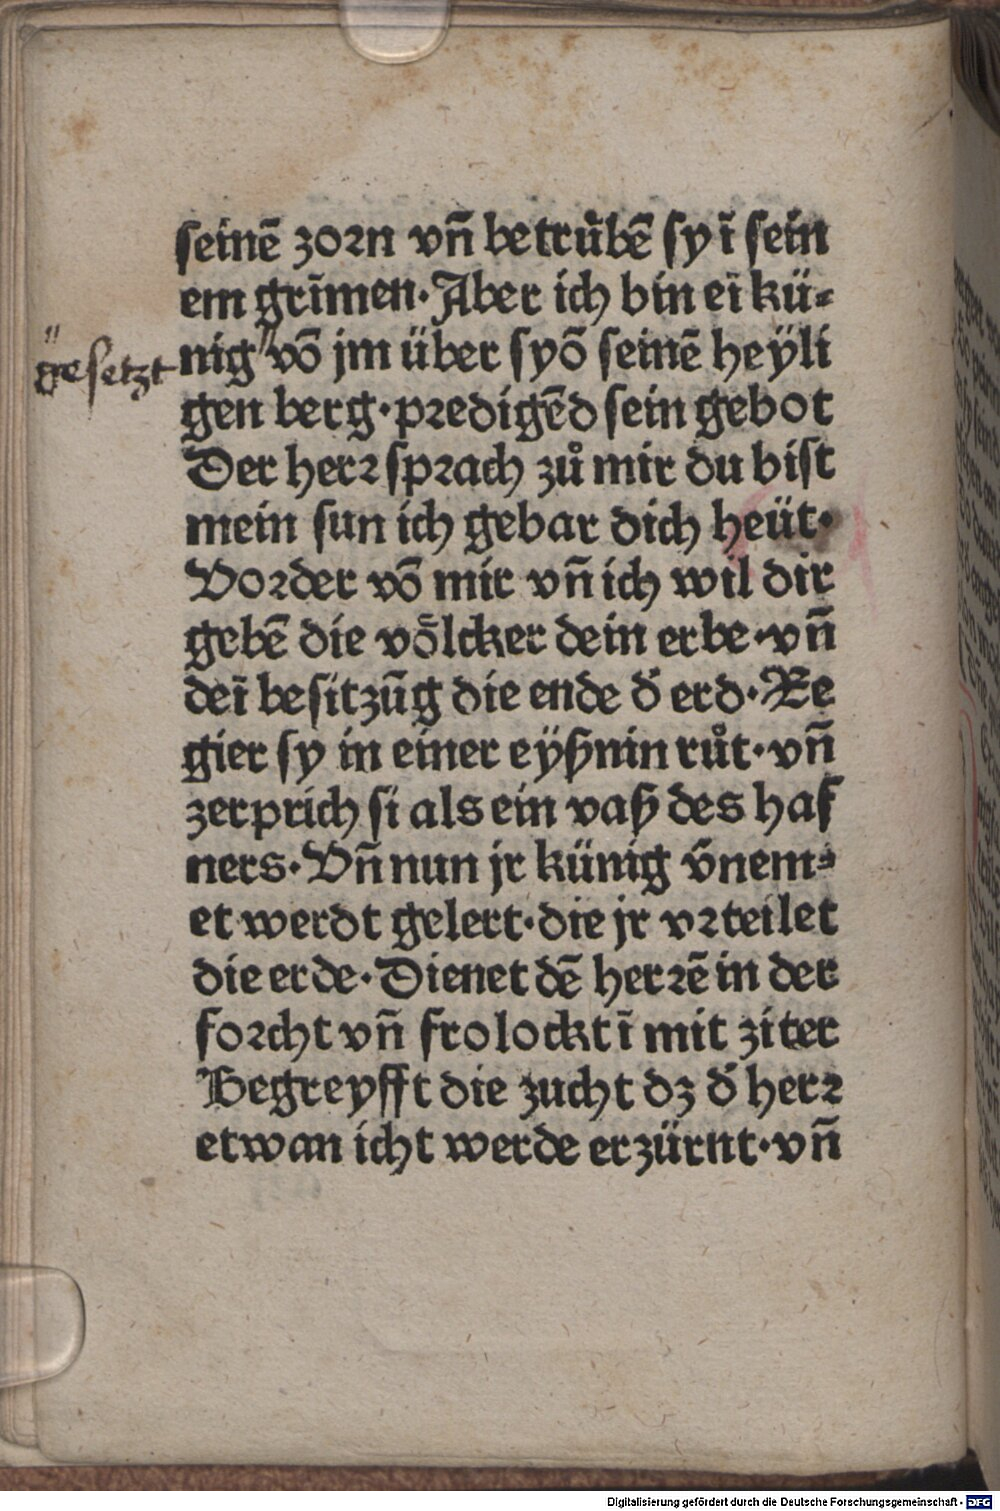 seinē zorn vñ betrůbē sy ī sein
em grīmen. Aber ich bin eī kü-
gesetzt
nig " vō jm über syō seinē heÿli
gen berg. predigēd sein gebot
Der herr sprach zů mir du bist
mein sun ich gebar dich heüt.
Vorder vō mir vñ ich wil dir
gebē die võlcker dein erbe. vñ
deī besitzūg die ende d̄ erd. Re
gier sy in einer eÿßnin růt. vñ
zerprich si als ein vaß des haf
ners. Vñ nun jr künig v̄nem-
et werdt gelert. die jr vrteilet
die erde. Dienet dē herrē in der
forcht vñ frolockt ī mit ziter
Begreyfft die zucht dz d̄ herr
etwan icht werde erzürnt. vñ
Digitalisierung gefördert durch die Deutsche Forschungsgemeinschaft - DFG